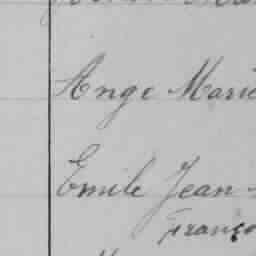 Ange Marie
Emile Jean-
Franço